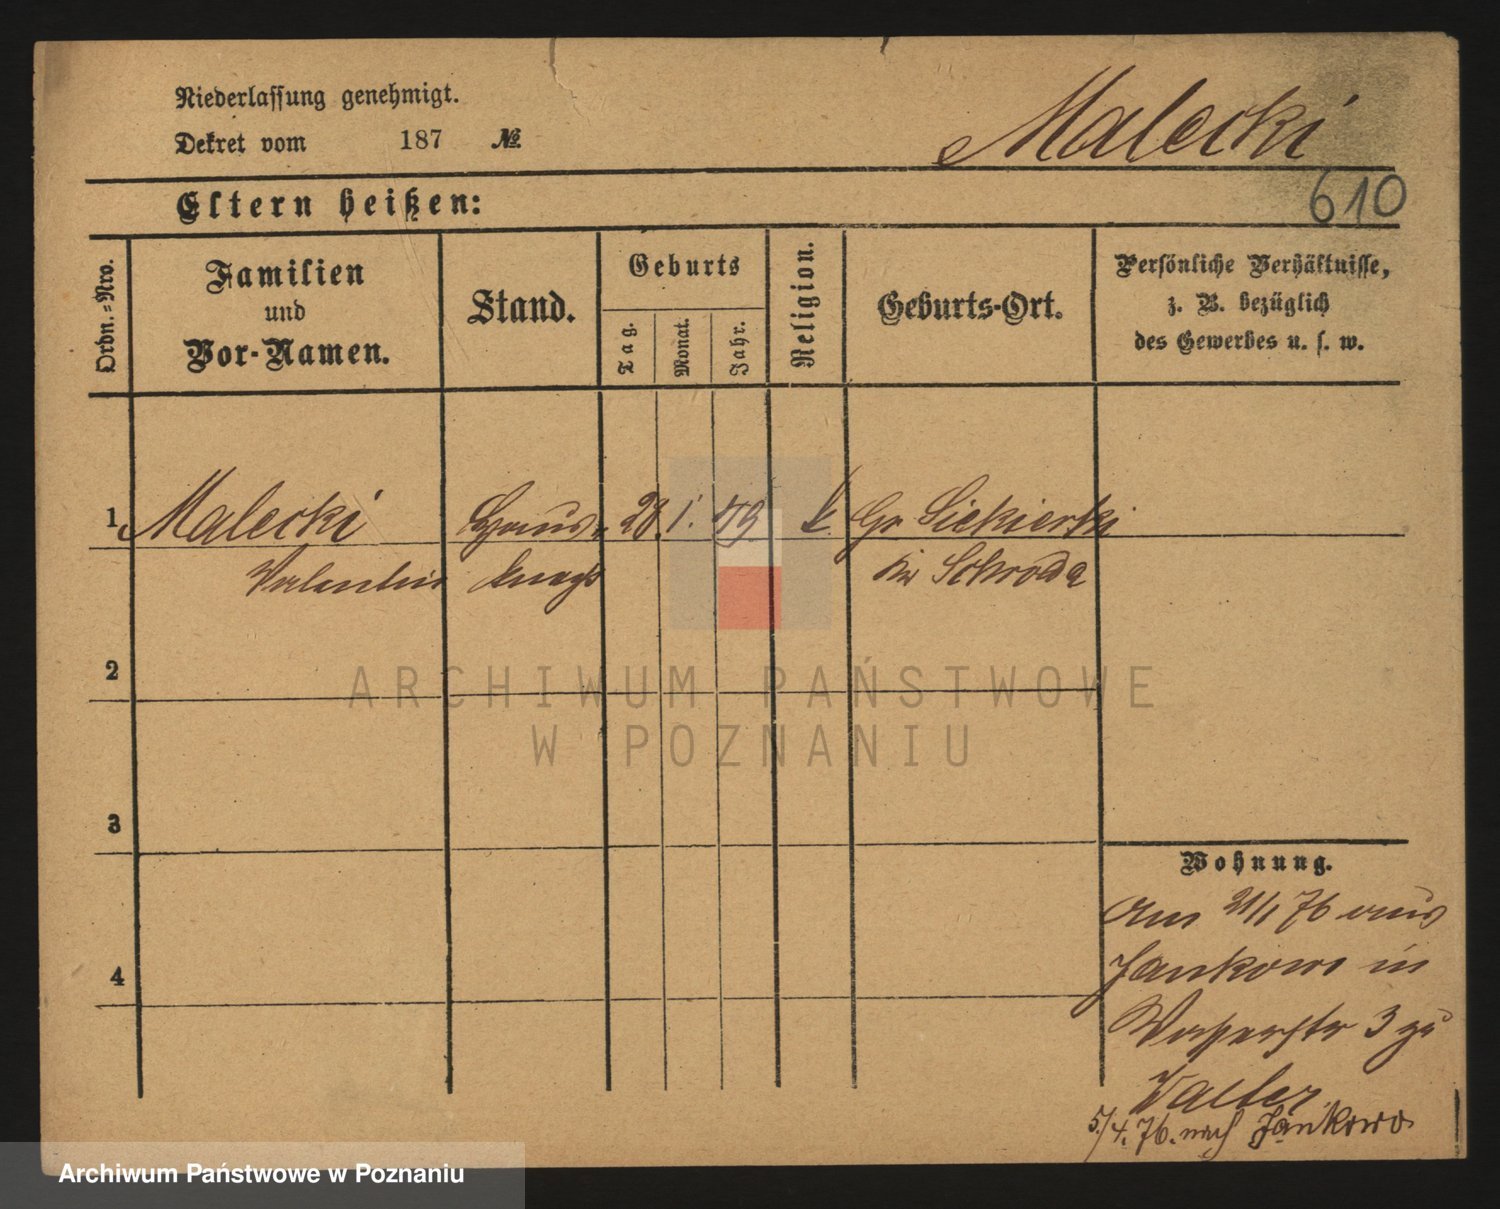 Niederlassung genehmigt.
Dekret vom 187 №
Malecki
610
Eltern heißen:
Ordn.-Nro.
Familien
und
Vor-Namen.
Stand.
Geburts
Tag.
Monat.
Jahr.
Religion.
Geburts-Ort.
Persönliche Verhältnisse,
z. B. bezüglich
des Gewerbes u. s. w.
1 Malecki Haus- 28. 1. 49 k Gr Siekierki
Valentin knecht Kr Schroda
2
3
4
Wohnung.
Am 21/1 76 aus
Jankowo in
Wasserstr 3 zu
Walter
5./4. 76. nach Jankowo
ARCHIWUM PAŃSTWOWE
W POZNANIU
Archiwum Państwowe w Poznaniu